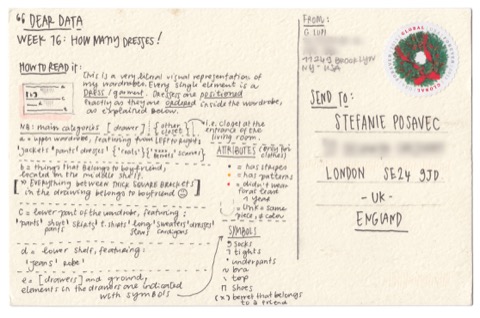 " DEAR DATA
WEEK 16: HOW MANY DRESSES!
HOW TO READ it:
this is a very literal visual representation of
my wardrobe. Every single element is a
DRESS / garment. Dresses are positioned
exactly as they are ordered inside the wardrobe,
as explained below.
NB: main categories [drawer] [other closet]
i.e. closet at the
entrance of the
living room.
a = upper wardrobe, featuring from left to right:
'jackets' 'pants' 'dress'
b = things that belong to boyfriend,
located on the middle shelf.
[ ] EVERYTHING BETWEEN THICK SQUARE BRACKETS
in the drawing belongs to boyfriend
c = lower part of the wardrobe, featuring:
'pants' 'short pants' 'skirts' 't.shirts' 'long' 'sweaters' 'dresses'
cardigans
d = lower shelf, featuring:
'jeans' 'robe'
e = [drawers] and ground,
elements in the drawers are indicated
with symbols
ATTRIBUTES (only for clothes)
= has stripes
= has patterns
= didn't wear
for at least
1 year
= link = same
piece, ≠ color
SYMBOLS
socks
tights
underpants
bra
top
shoes
(x) beret that belongs
to a friend
FROM:
G. LUPI
BROOKLYN
NY - USA
GLOBAL
FOREVER
SEND TO:
STEFANIE POSAVEC
LONDON SE24 9JD
- UK -
ENGLAND